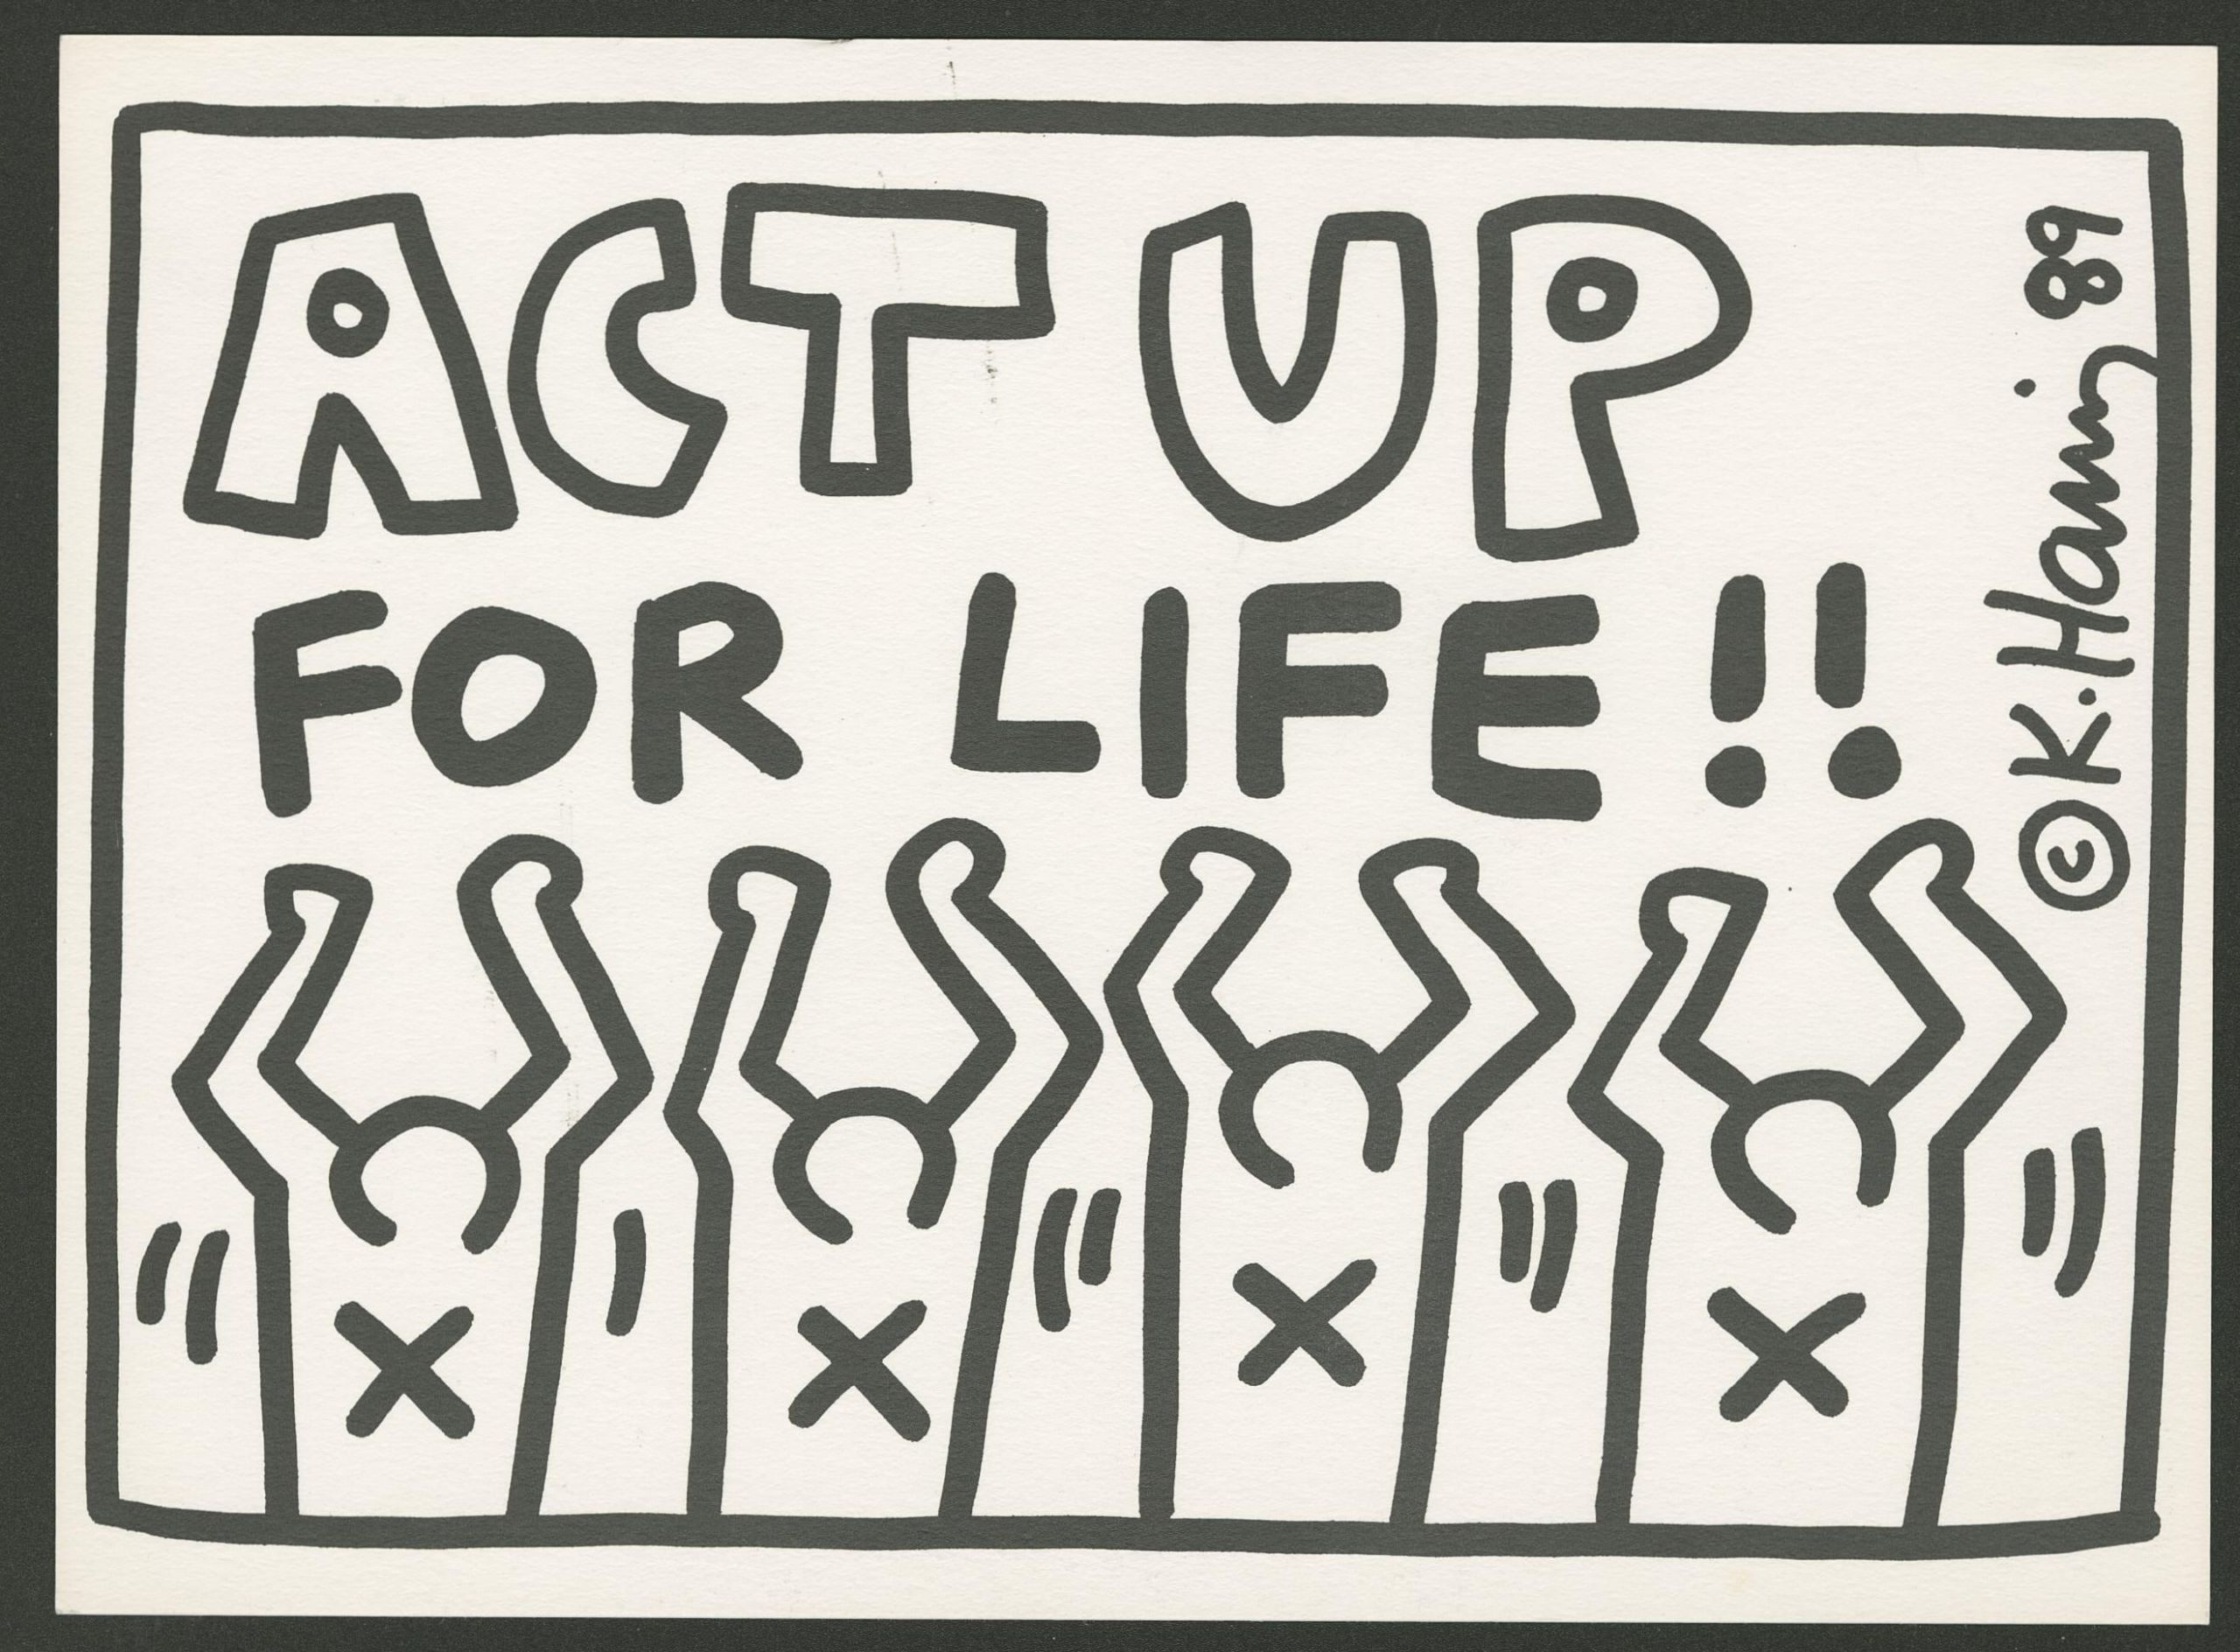 ACT UP
FOR LIFE!!
© K. Haring 89